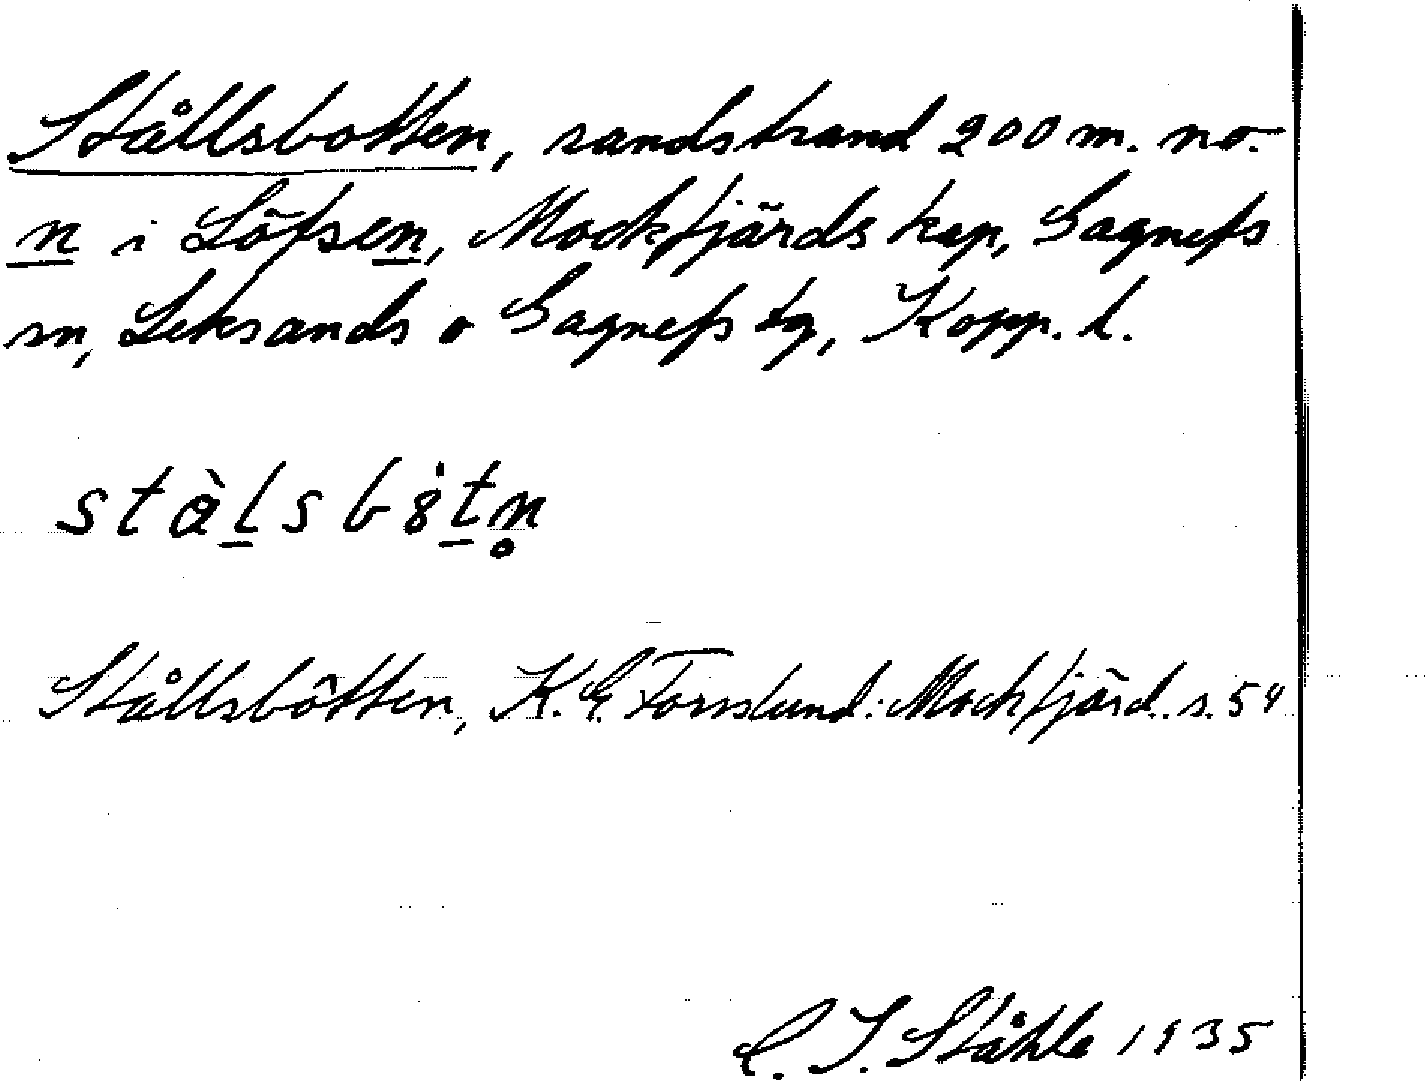 Stållsbotten, sandstrand 200 m. no.
n i Löfsen, Mockfjärds kap, Gagnefs
sn, Leksands o Gagnefs tg, Kopp. l.
stàlsbȯ̀tn̥
Stållsbôtten, K.E. Forslund: Mockfjärd. s. 54
C. I. Ståhle 1935